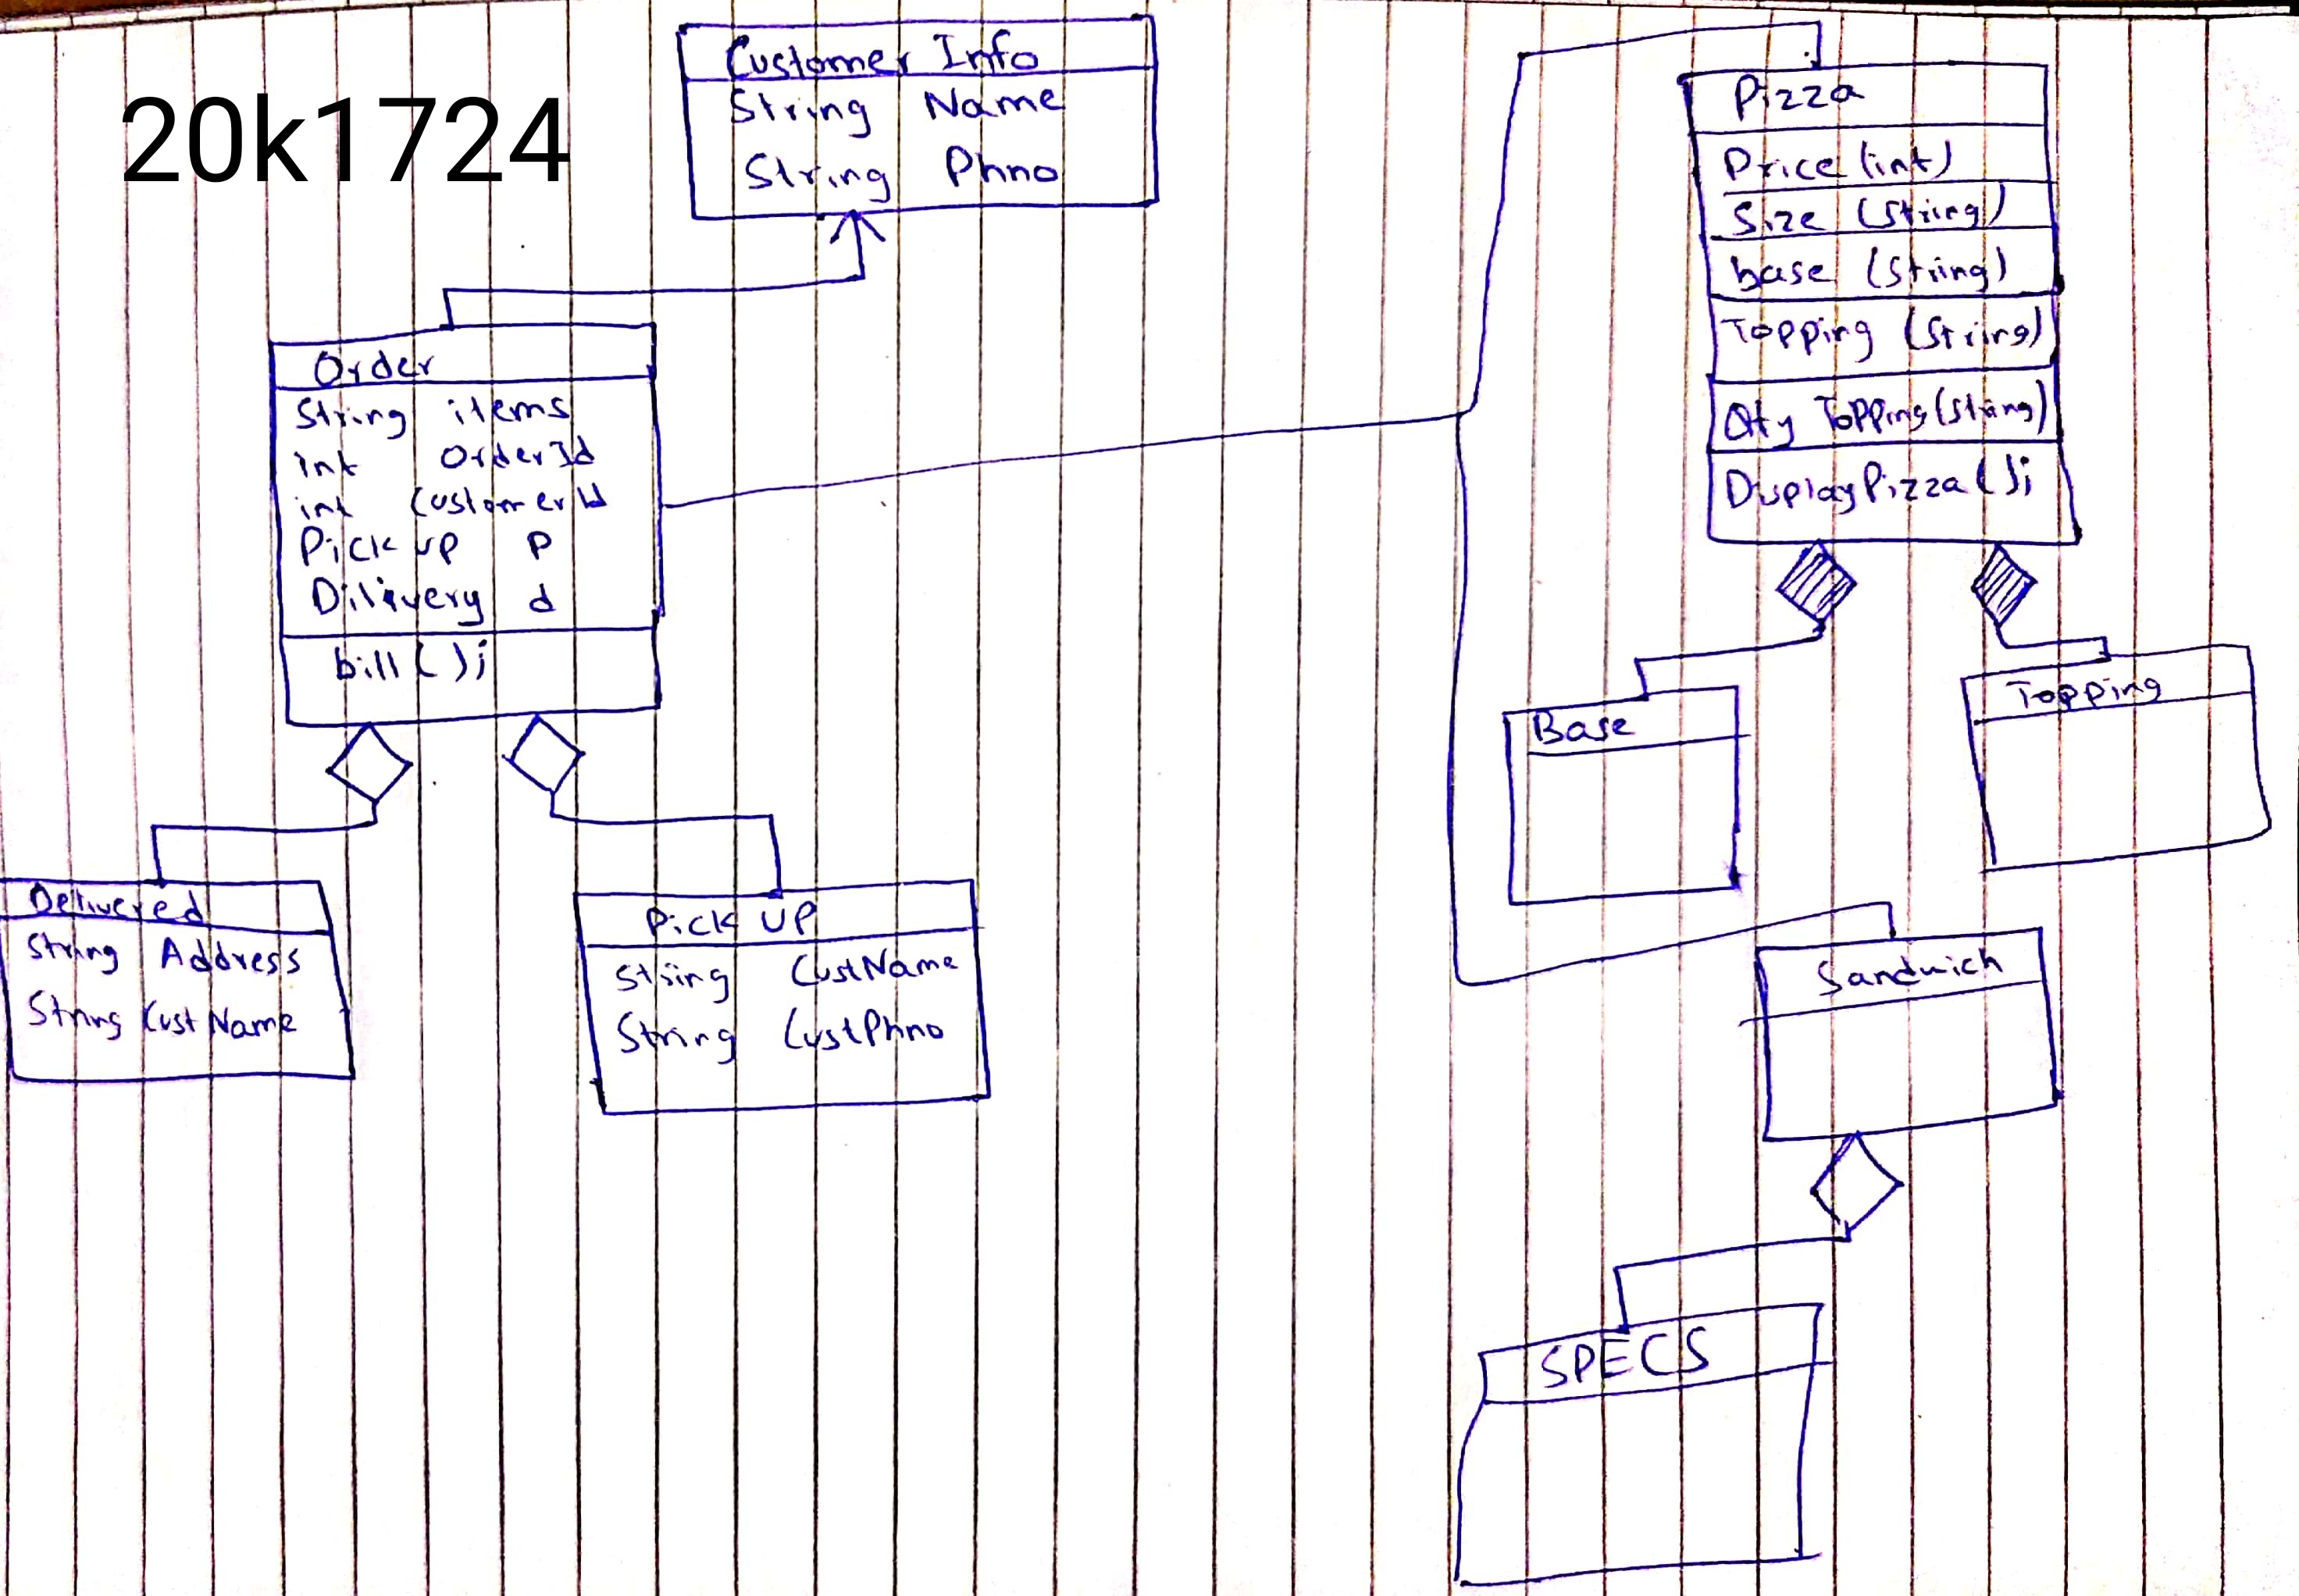 20k1724
Customer Info
String Name
String Phno
Order
String items
int OrderId
int CustomerId
Pick up P
Dilivery d
bill();
Delivered
String Address
String CustName
Pick UP
String CustName
String CustPhno
Pizza
Price (int)
Size (String)
base (String)
Topping (String)
Qty Topping (String)
DisplayPizza();
Base
Topping
Sandwich
SPECS